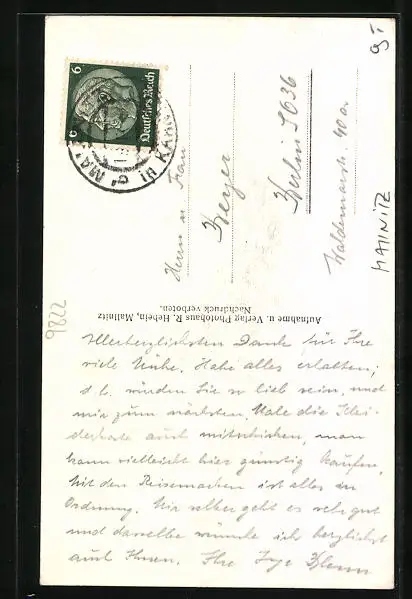 Allerherzlichsten Dank für Ihre
viele Mühe. Habe alles erhalten;
d. h. würden Sie so lieb sein, und
mir zum nächsten Male die Klei-
derkarte auch mitschicken, man
kann vielleicht hier günstig kaufen.
Mit den Reisemarken ist alles in
Ordnung. Mir selber geht es sehr gut
und dasselbe wünsche ich herzlichst
auch Ihnen. Ihre
Aufnahme u. Verlag Photohaus R. Hebein, Mallnitz
Nachdruck verboten.
Herrn u. Frau
Beyer
Berlin SO36
Waldemarstr. 40a
Deutsches Reich
6
6
MALLNITZ
9822